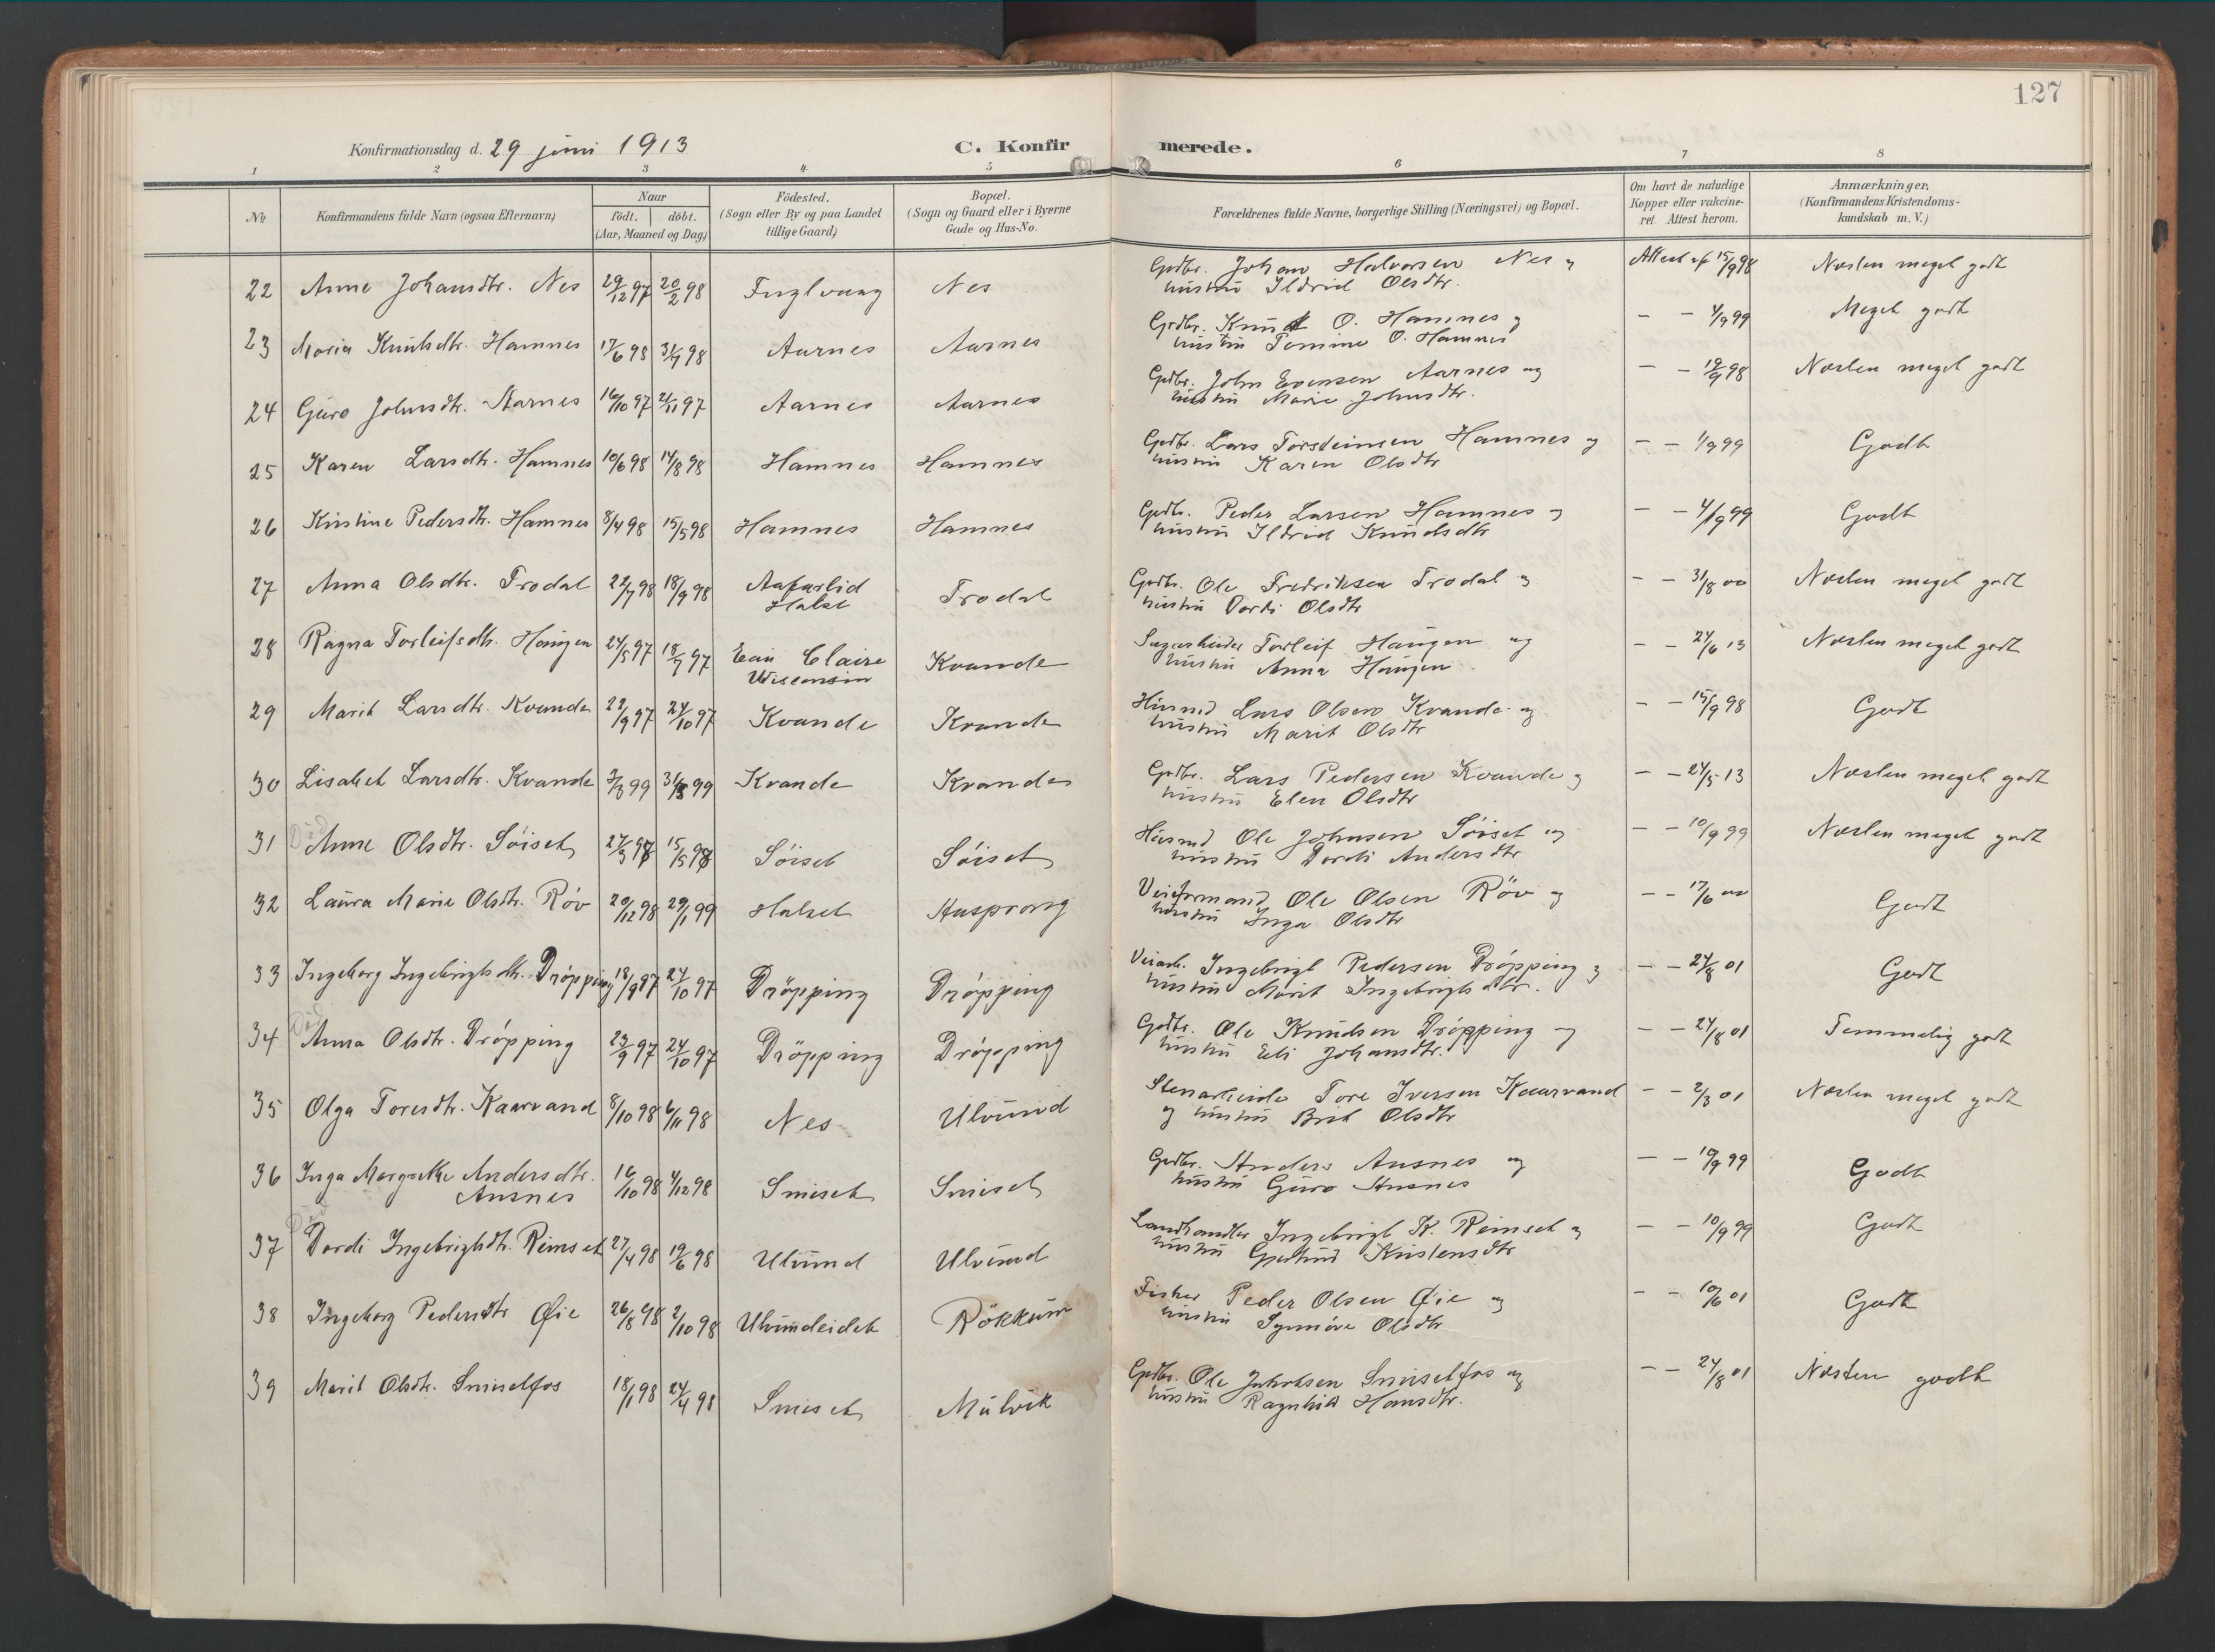 127
Konfirmationsdag d. 29 juni 1913 C. Konfirmerede.
1 2 3 4 5 6 7 8
No
Konfirmandens fulde Navn (ogsaa Efternavn)
Naar
födt. döbt.
(Aar, Maaned og Dag)
Födested.
(Sogn eller By og paa Landet
tillige Gaard)
Bopæl.
(Sogn og Gaard eller i Byerne
Gade og Hus-No.
Forældrenes fulde Navne, borgerlige Stilling (Næringsvei) og Bopæl.
Om havt de naturlige
Kopper eller vakcine-
ret. Attest herom.
Anmærkninger.
(Konfirmandens Kristendoms-
kundskab m. V.)
22 Anne Johansdtr. Nes 29/12 97 20/2 98 Fuglvaag Nes Grdbr. Johan Halvorsen Nes og Attest af 15/9 98 Næsten meget godt
hustru Ildrid Olsdtr.
23 Maria Knutsdtr. Hamnes 17/6 98 31/7 98 Aarnes Aarnes Grdbr. Knut O. Hamnes og - - 1/9 99 Meget godt
hustru Tomine O. Hamnes
24 Guro Johnsdtr. Aarnes 16/10 97 21/11 97 Aarnes Aarnes Grdbr. John Evensen Aarnes og - - 19/9 98 Næsten meget godt
hustru Marie Johnsdtr.
25 Karen Larsdtr. Hamnes 10/6 98 14/8 98 Hamnes Hamnes Grdbr. Lars Torsteinsen Hamnes og - - 1/9 99 Godt
hustru Karen Olsdtr
26 Kirstine Pedersdtr. Hamnes 8/4 98 15/5 98 Hamnes Hamnes Grdbr. Peder Larsen Hamnes og - - 4/9 99 Godt
hustru Ildrid Knudsdtr
27 Anna Olsdtr. Trodal 22/7 98 18/9 98 Aafarlid Trodal Grdbr. Ole Fredriksen Trodal og - - 31/8 00 Næsten meget godt
Halse hustru Dordi Olsdtr
28 Ragna Torleifsdtr. Haugen 24/5 97 18/7 97 Eau Claire Kvande Sagarbeider Torleif Haugen og - - 24/6 13 Næsten meget godt
Wisconsin hustru Anna Haugen
29 Marit Larsdtr. Kvande 22/9 97 24/10 97 Kvande Kvande Husmd Lars Olsen Kvande og - - 15/9 98 Godt
hustru Marit Olsdtr
30 Lisabet Larsdtr. Kvande 7/3 99 31/3 99 Kvande Kvande Grdbr. Lars Pedersen Kvande og - - 24/5 13 Næsten meget godt
hustru Elen Olsdtr
Död
31 Anne Olsdtr. Söiset 27/3 98 15/5 98 Söiset Söiset Husmd Ole Johnsen Söiset og - - 10/9 99 Næsten meget godt
hustru Dordi Andersdtr
32 Laura Marie Olsdtr. Röv 20/12 98 29/1 99 Halset Aasprong Veiformand Ole Olsen Röv og - - 17/6 00 Godt
hustru Inga Olsdtr
33 Ingeborg Ingebrigtsdtr. Dröpping 18/9 97 24/10 97 Dröpping Dröpping Veiarb. Ingebrigt Pedersen Dröpping og - - 24/8 01 Godt
hustru Marit Ingebrigtsdtr.
Död
34 Anna Olsdtr. Dröpping 23/9 97 24/10 97 Dröpping Dröpping Grdbr. Ole Knudsen Dröpping og - - 24/8 01 Temmelig godt
hustru Eli Johansdtr.
35 Olga Toresdtr. Kaarvand 8/10 98 6/11 98 Nes Ulvund Stenarbeider Tore Iversen Kaarvand - - 2/3 01 Næsten meget godt
og hustru Brit Olsdtr
36 Inga Margrethe Andersdtr. 16/10 98 4/12 98 Smiset Smiset Grdbr. Anders Ausnes og - - 19/9 99 Godt
Ausnes hustru Guro Ausnes
Död
37 Dordi Ingebrigtsdtr. Rimset 27/4 98 19/6 98 Ulvund Ulvund Landhandler Ingebrigt K. Reimset og - - 10/9 99 Godt
hustru Gjertrud Kristensdtr
38 Ingeborg Pedersdtr Øie 26/8 98 2/10 98 Ulvundeidet Rökkum Fisker Peder Olsen Øie og - - 10/6 01 Godt
hustru Synnöve Olsdtr
39 Marit Olsdtr. Smisetfos 18/1 98 24/4 98 Smiset Mulvik Grdbr. Ole Jakobsen Smisetfos og - - 24/8 01 Næsten godt
hustru Ragnhild Hansdtr.